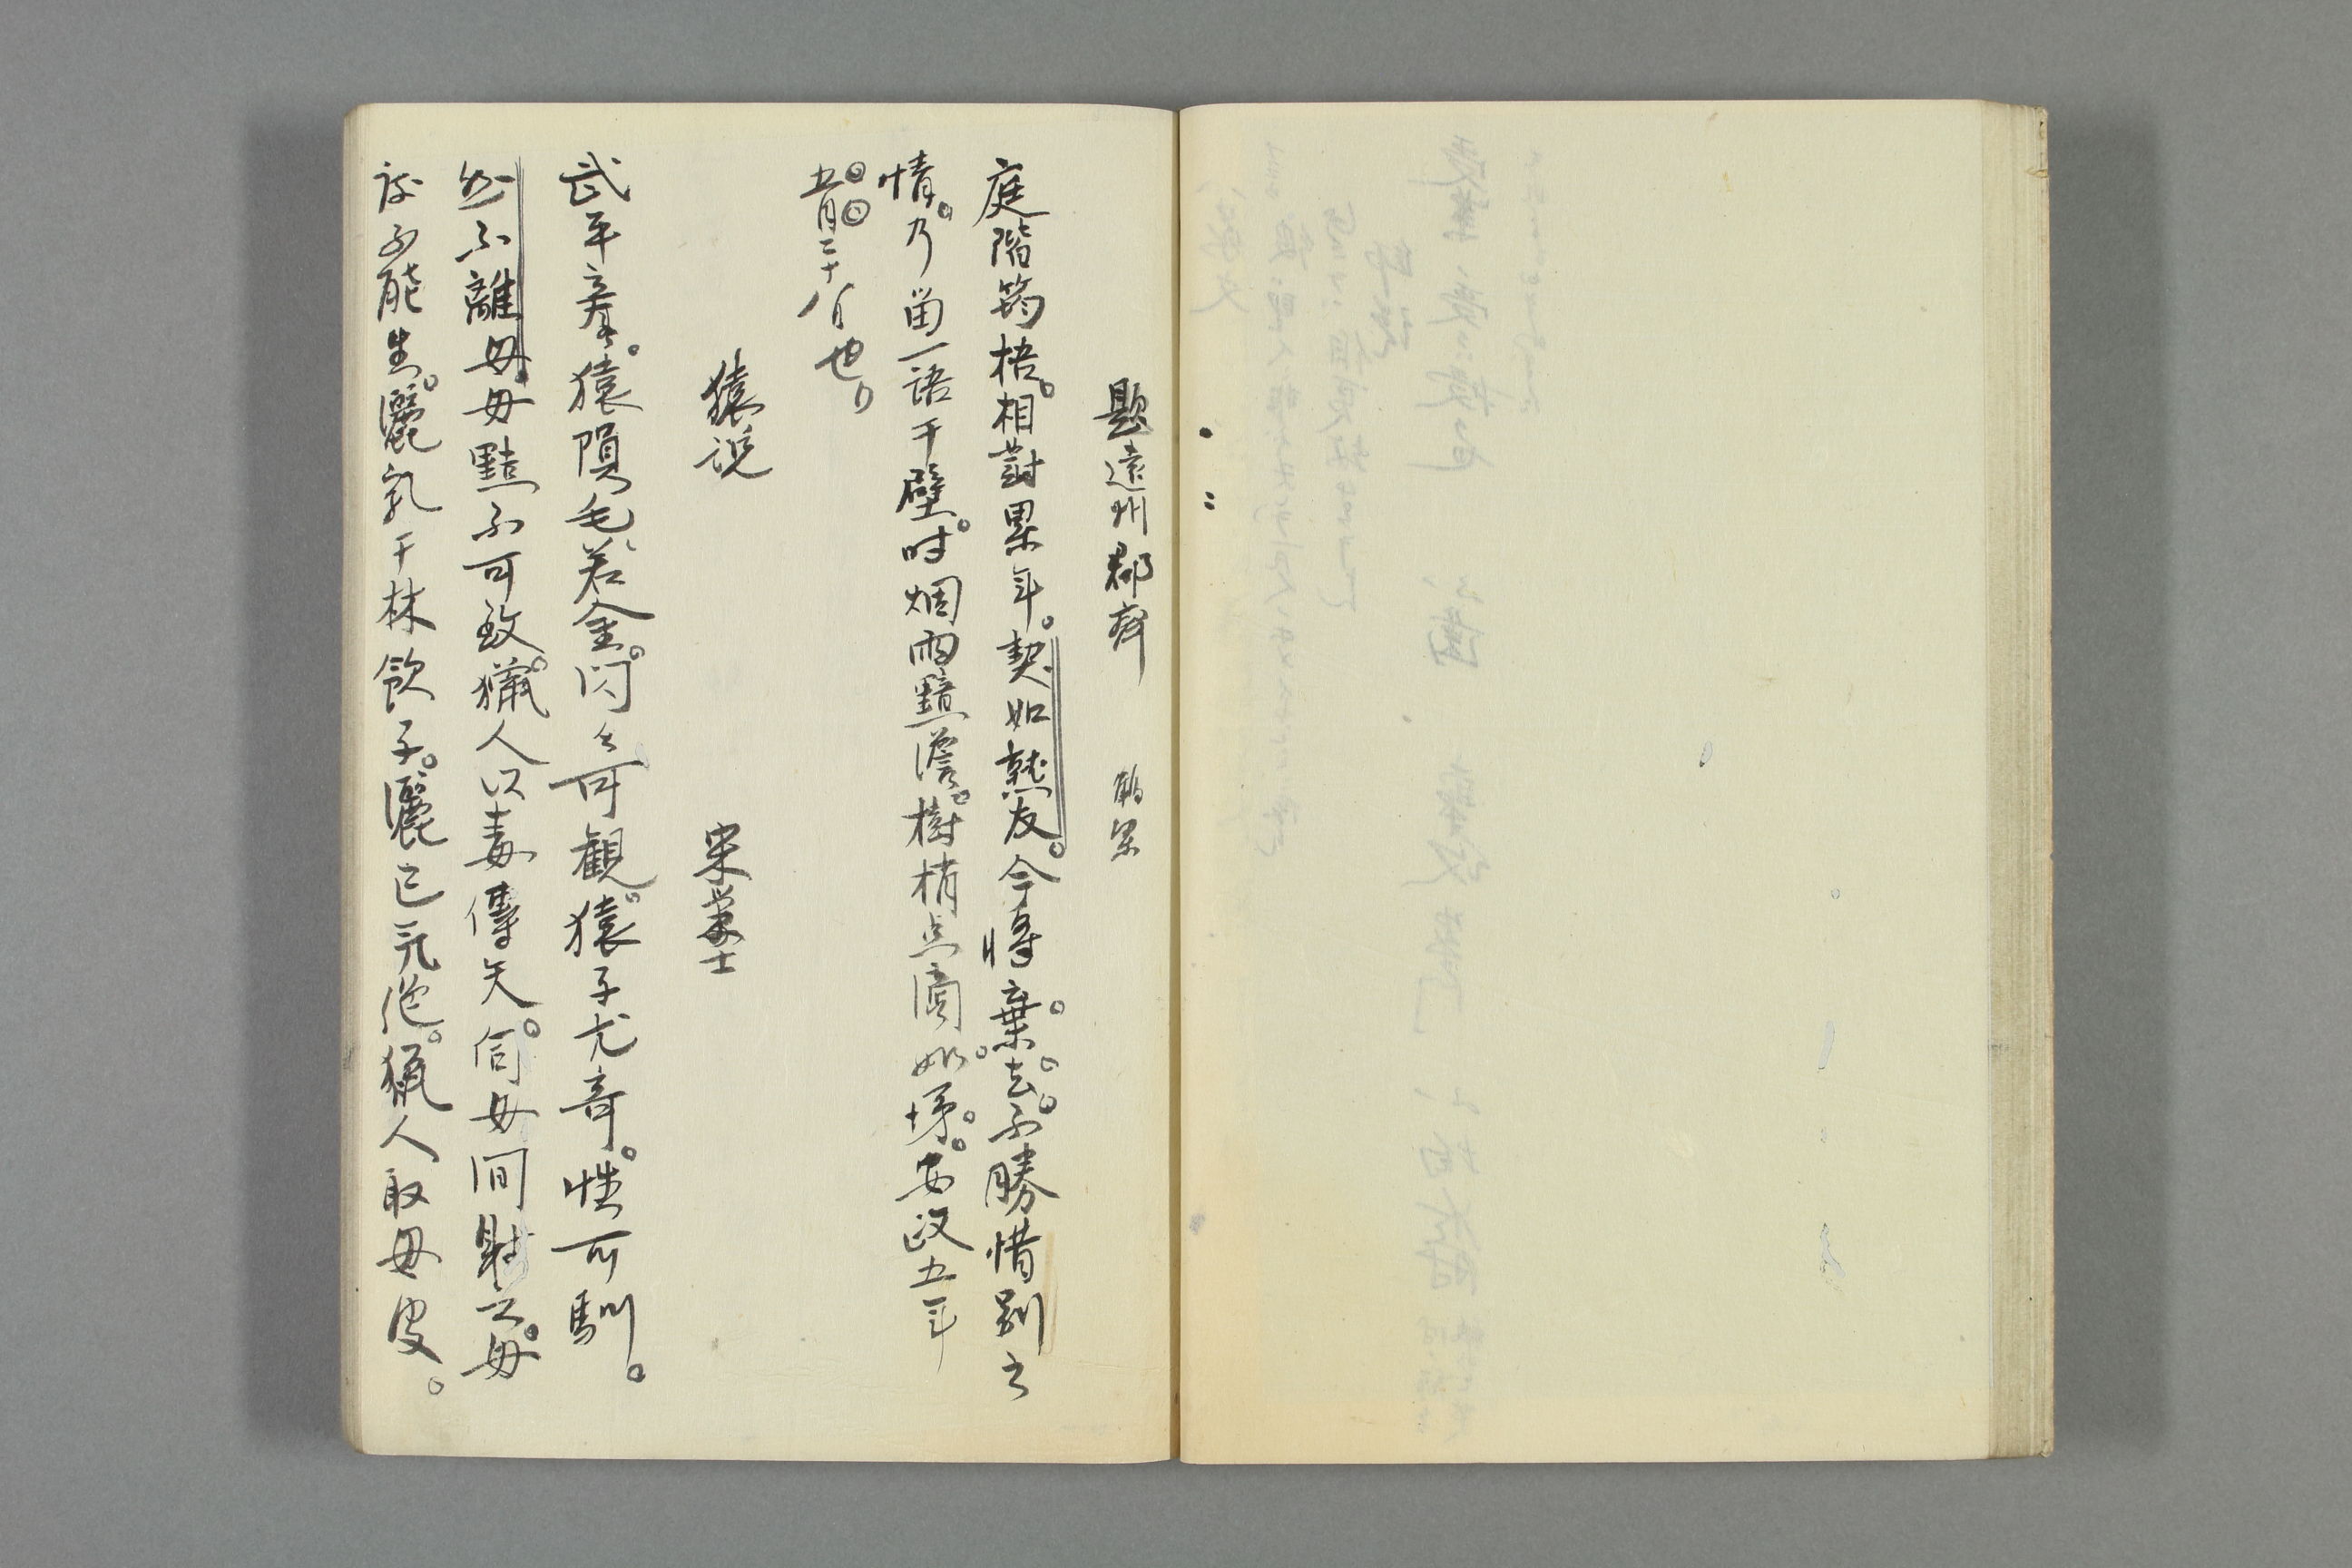 題遠州郡齋　鶴梁
庭階筠梧。相對累年。契如熟友。今將棄去。不勝惜別之
情。乃留一語于壁。時烟雨黯澹。樹梢点滴如涕。安政五年
五月二十八日也
猿説　宋学士
武平産猿。猿毛若金。閃々可觀。猿子尤奇。性可馴。
然不離母。母黠不可致。獵人以毒傅矢。伺母間射之。母
度不能生。灑乳于林飲子。灑已氣絶。獵人取母皮。